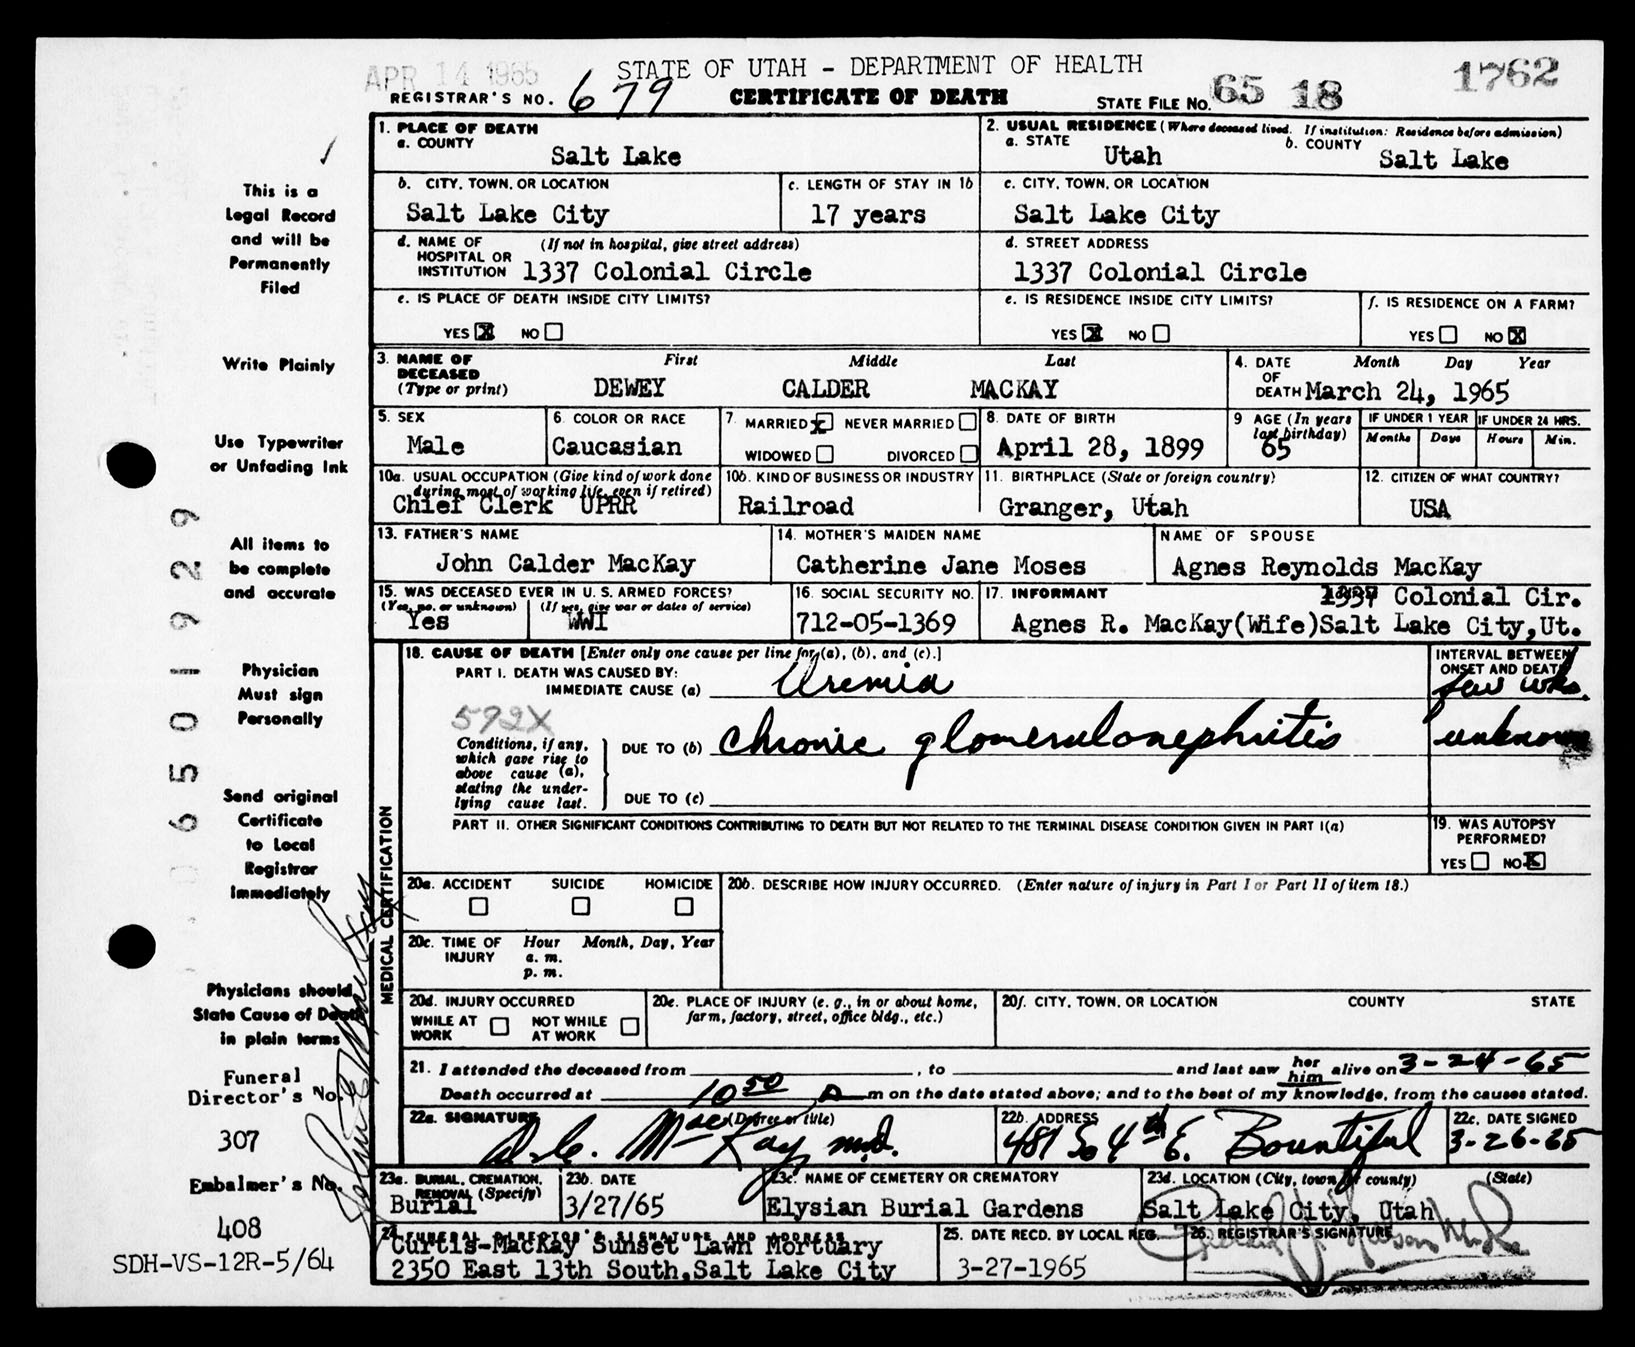 APR 14 1965
STATE OF UTAH - DEPARTMENT OF HEALTH
1762
REGISTRAR'S NO. 679
CERTIFICATE OF DEATH
STATE FILE NO. 65 18
1. PLACE OF DEATH
a. COUNTY
Salt Lake
2. USUAL RESIDENCE (Where deceased lived. If institution: Residence before admission)
a. STATE
Utah
b. COUNTY
Salt Lake
b. CITY, TOWN, OR LOCATION
Salt Lake City
c. LENGTH OF STAY IN 1b
17 years
c. CITY, TOWN, OR LOCATION
Salt Lake City
d. NAME OF (If not in hospital, give street address)
HOSPITAL OR
INSTITUTION 1337 Colonial Circle
d. STREET ADDRESS
1337 Colonial Circle
e. IS PLACE OF DEATH INSIDE CITY LIMITS?
YES X NO
e. IS RESIDENCE INSIDE CITY LIMITS?
YES X NO
f. IS RESIDENCE ON A FARM?
YES NO X
3. NAME OF
DECEASED
(Type or print)
First Middle Last
DEWEY CALDER MACKAY
4. DATE Month Day Year
OF
DEATH March 24, 1965
5. SEX
Male
6. COLOR OR RACE
Caucasian
7. MARRIED X NEVER MARRIED
WIDOWED DIVORCED
8. DATE OF BIRTH
April 28, 1899
9 AGE (In years
last birthday)
65
IF UNDER 1 YEAR
Months Days
IF UNDER 24 HRS.
Hours Min.
10a. USUAL OCCUPATION (Give kind of work done
during most of working life, even if retired)
Chief Clerk UPRR
10b. KIND OF BUSINESS OR INDUSTRY
Railroad
11. BIRTHPLACE (State or foreign country)
Granger, Utah
12. CITIZEN OF WHAT COUNTRY?
USA
13. FATHER'S NAME
John Calder MacKay
14. MOTHER'S MAIDEN NAME
Catherine Jane Moses
NAME OF SPOUSE
Agnes Reynolds MacKay
15. WAS DECEASED EVER IN U. S. ARMED FORCES?
(Yes, no, or unknown) (If yes, give war or dates of service)
Yes WWI
16. SOCIAL SECURITY NO.
712-05-1369
17. INFORMANT 1337 Colonial Cir.
Agnes R. MacKay(Wife)Salt Lake City,Ut.
MEDICAL CERTIFICATION
18. CAUSE OF DEATH [Enter only one cause per line for (a), (b), and (c).]
PART I. DEATH WAS CAUSED BY:
IMMEDIATE CAUSE (a) Uremia
INTERVAL BETWEEN
ONSET AND DEATH
few wks.
592X
Conditions, if any,
which gave rise to
above cause (a),
stating the under-
lying cause last.
DUE TO (b) Chronic glomerulonephritis
unknown
DUE TO (c)
PART II. OTHER SIGNIFICANT CONDITIONS CONTRIBUTING TO DEATH BUT NOT RELATED TO THE TERMINAL DISEASE CONDITION GIVEN IN PART I(a)
19. WAS AUTOPSY
PERFORMED?
YES NO X
20a. ACCIDENT SUICIDE HOMICIDE
20b. DESCRIBE HOW INJURY OCCURRED. (Enter nature of injury in Part I or Part II of item 18.)
20c. TIME OF Hour Month, Day, Year
INJURY a. m.
p. m.
20d. INJURY OCCURRED
WHILE AT NOT WHILE
WORK AT WORK
20e. PLACE OF INJURY (e. g., in or about home,
farm, factory, street, office bldg., etc.)
20f. CITY, TOWN, OR LOCATION COUNTY STATE
21. I attended the deceased from , to and last saw her him alive on 3-24-65
Death occurred at 10 50 m on the date stated above; and to the best of my knowledge, from the causes stated.
22a. SIGNATURE (Degree or title)
D.C. MacKay M.D.
22b. ADDRESS
481 So 4th E. Bountiful
22c. DATE SIGNED
3-26-65
23a. BURIAL, CREMATION,
REMOVAL (Specify)
Burial
23b. DATE
3/27/65
23c. NAME OF CEMETERY OR CREMATORY
Elysian Burial Gardens
23d. LOCATION (City, town, or county) (State)
Salt Lake City, Utah
24. FUNERAL DIRECTOR'S SIGNATURE AND ADDRESS
Curtis-MacKay Sunset Lawn Mortuary
2350 East 13th South,Salt Lake City
25. DATE RECD. BY LOCAL REG.
3-27-1965
26. REGISTRAR'S SIGNATURE
This is a
Legal Record
and will be
Permanently
Filed
Write Plainly
Use Typewriter
or Unfading Ink
All items to
be complete
and accurate
Physician
Must sign
Personally
Send original
Certificate
to Local
Registrar
immediately
Physicians should
State Cause of Death
in plain terms
Funeral
Director's No.
307
Embalmer's No.
408
SDH-VS-12R-5/64
0650 1929